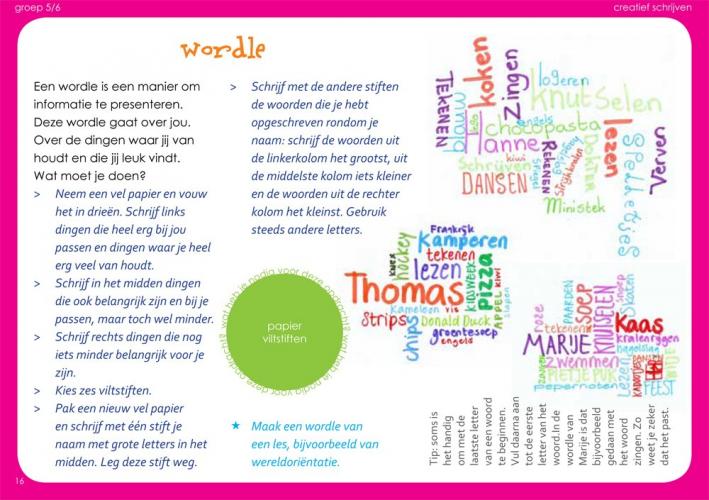 groep 5/6
creatief schrijven
wordle
Een wordle is een manier om
informatie te presenteren.
Deze wordle gaat over jou.
Over de dingen waar jij van
houdt en die jij leuk vindt.
Wat moet je doen?
> Neem een vel papier en vouw
het in drieën. Schrijf links
dingen die heel erg bij jou
passen en dingen waar je heel
erg veel van houdt.
> Schrijf in het midden dingen
die ook belangrijk zijn en bij je
passen, maar toch wel minder.
> Schrijf rechts dingen die nog
iets minder belangrijk voor je
zijn.
> Kies zes viltstiften.
> Pak een nieuw vel papier
en schrijf met één stift je
naam met grote letters in het
midden. Leg deze stift weg.
> Schrijf met de andere stiften
de woorden die je hebt
opgeschreven rondom je
naam: schrijf de woorden uit
de linkerkolom het grootst, uit
de middelste kolom iets kleiner
en de woorden uit de rechter
kolom het kleinst. Gebruik
steeds andere letters.
wat heb je nodig voor deze opdracht?
papier
viltstiften
★ Maak een wordle van
een les, bijvoorbeeld van
wereldoriëntatie.
TEKENEN
koken
Zingen
logeren
knutselen
blauw
engels
chocopasta
anne
lezen
kiwi
REKENEN
Schrijven
DANSEN
Spiegel
DOKTER
Spelletjes
Verven
Ministek
Frankrijk
hockey
Kamperen
tekenen
lezen
KIJKWEEK
pizza
Thomas
APPEL
kiwi
Kameleon
vis
slapen
Strips
chips
Donald Duck
groentesoep
engels
roze
PAARDEN
SOEP
KNUTSELEN
Snoep
Skaten
tekenen
MARIJE
Kaas
kralenrijgen
hagelslag
zwemmen
PIETJE PUK
KADOOTJES
pepernoten
Lezen
FEEST
Tip: soms is
het handig
om met de
laatste letter
van een woord
te beginnen.
Vul daarna aan
tot de eerste
letter van het
woord.In de
wordle van
Marije is dat
bijvoorbeeld
gedaan met
het woord
zingen. Zo
weet je zeker
dat het past.
16